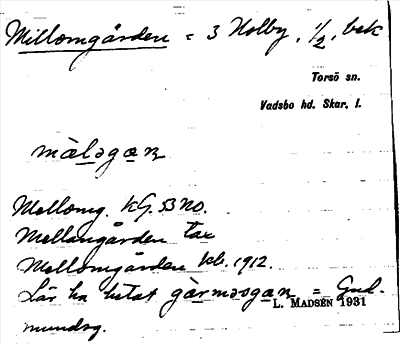 Millomgården = 3 Holby, 1/2, bek
Torsö sn.
Vadsbo hd. Skar. l.
màləgaɳ
Mellomg. KG. 53 NO.
Mellangården tax
Mellomgården kb. 1912.
Lär ha hetat gàrməsgaɳ = Gud-
L. MADSÉN 1931
mundsg.